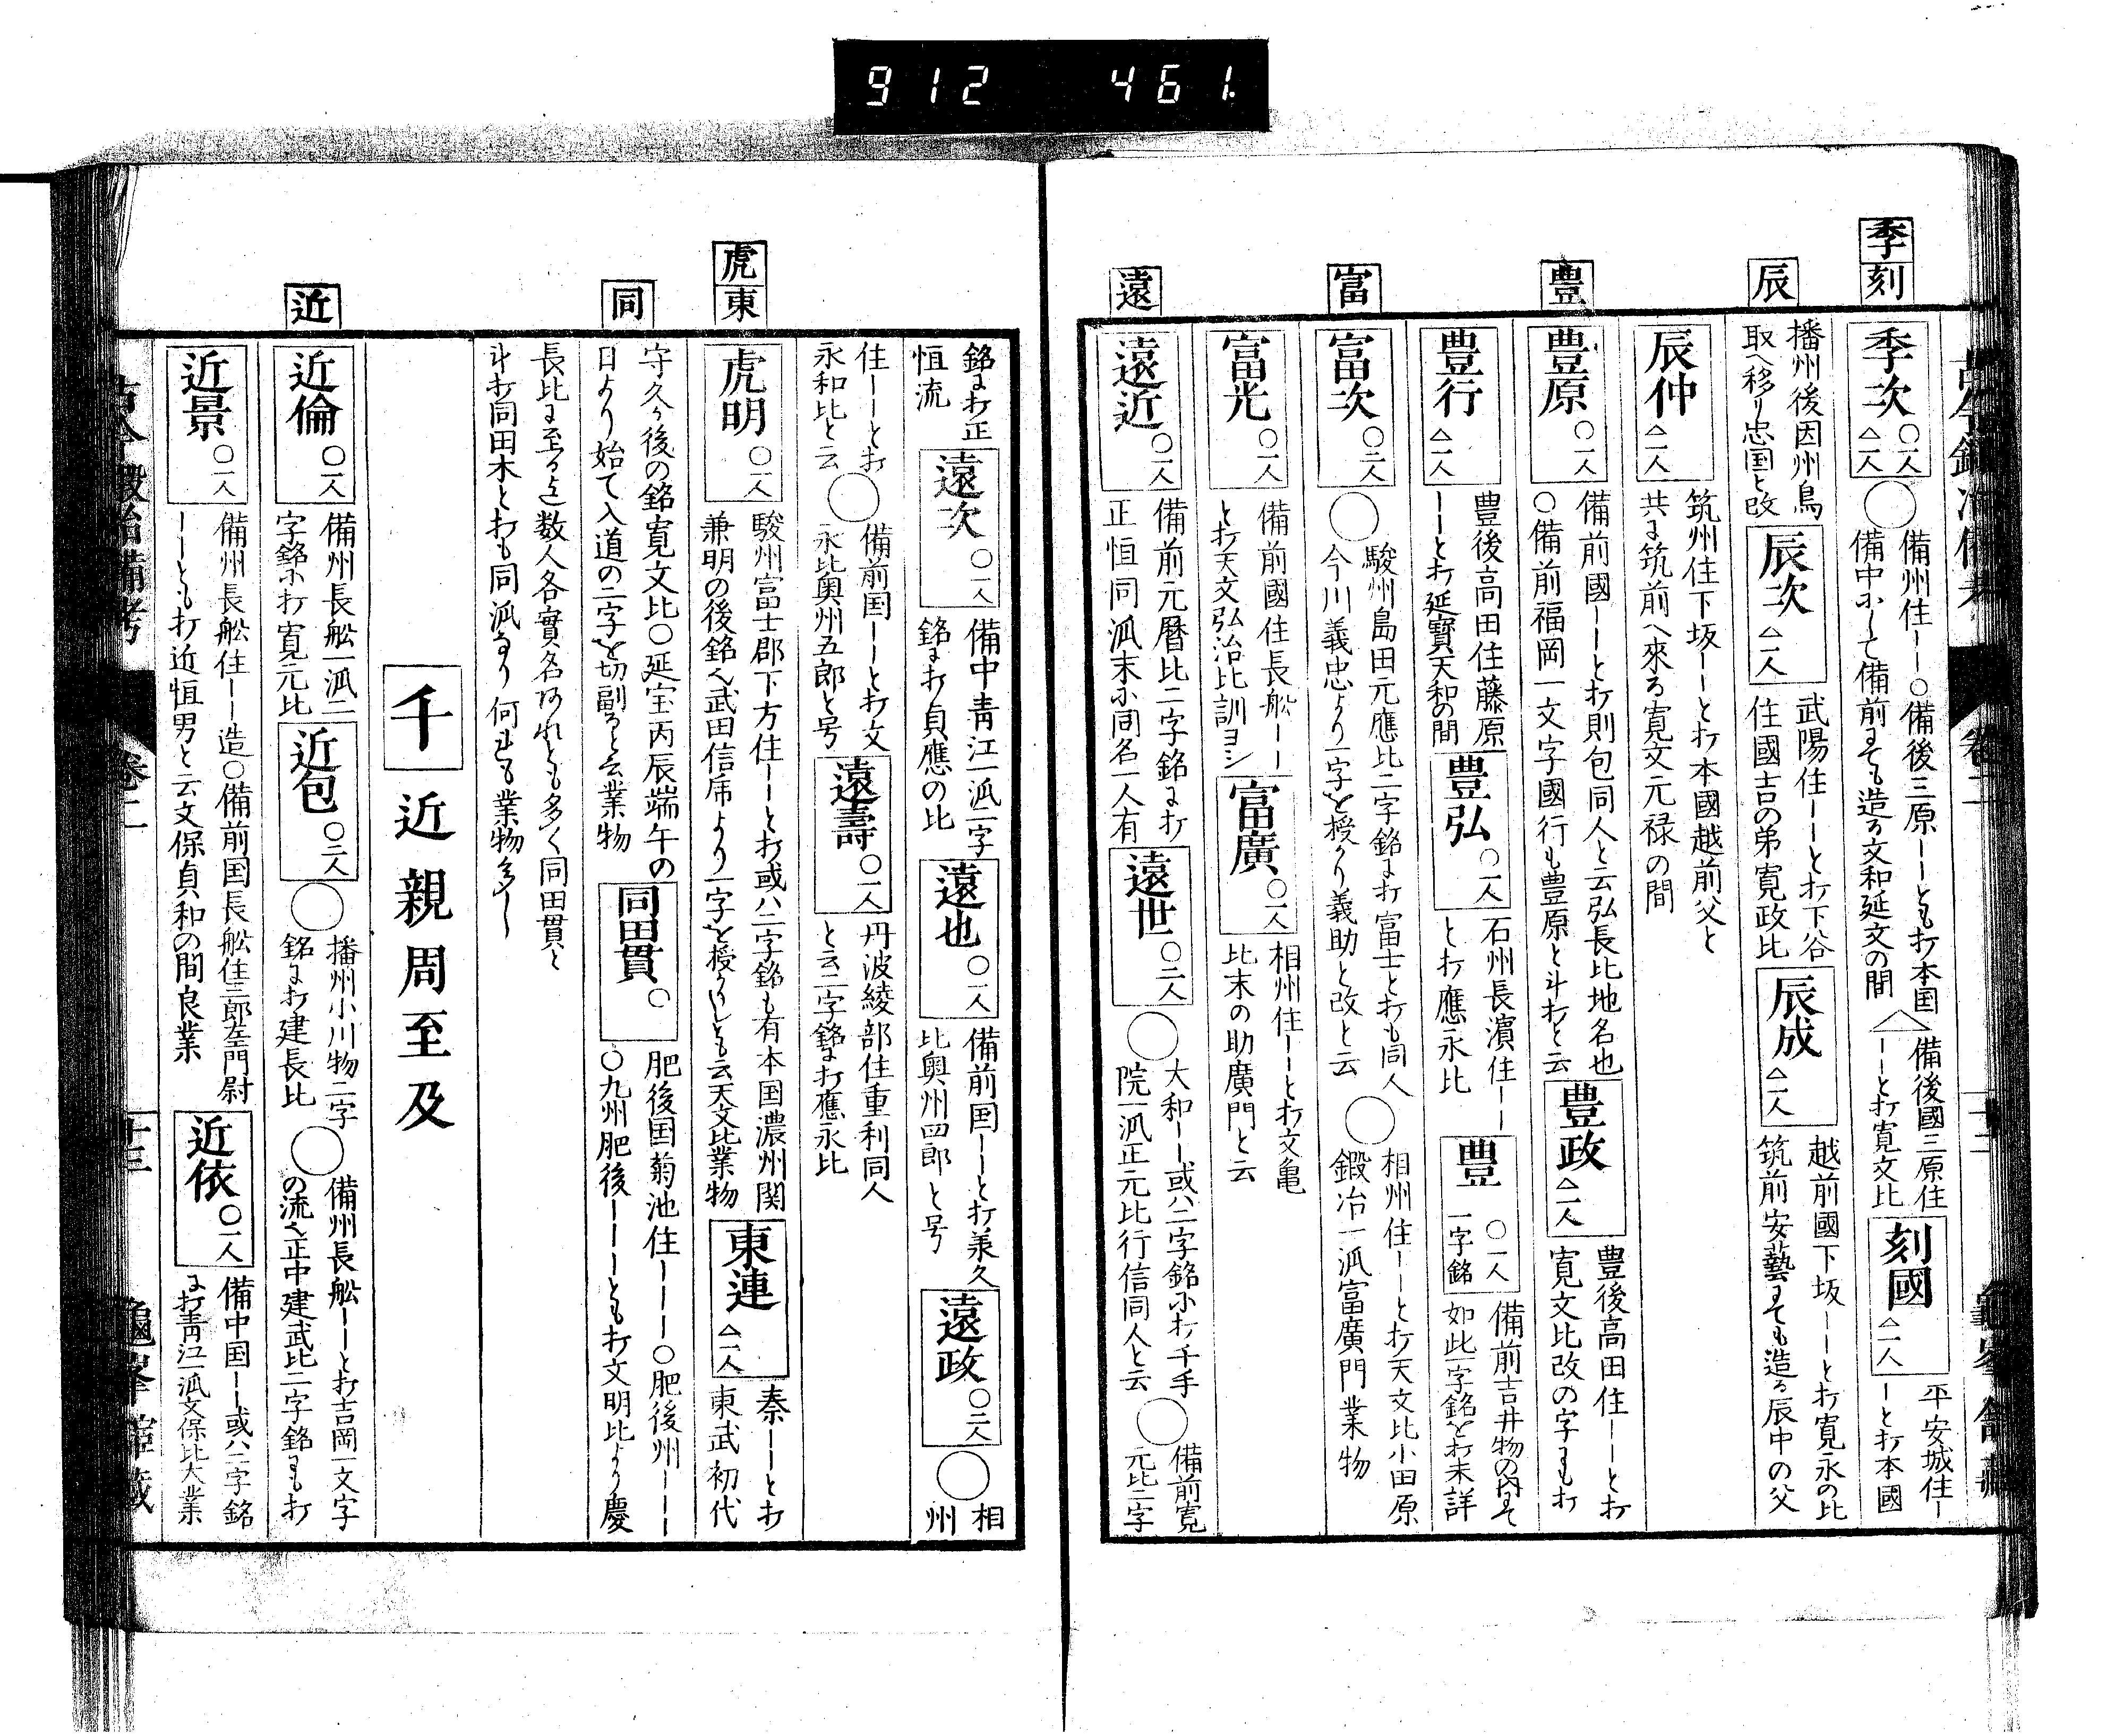 912 461.
季刻
辰
豊
富
遠
季次 〇一人 △二人 〇 備州住ーー〇備後三原ーーとも打本国
備中ニして備前にても造る文和延文の間 △ 備後國三原住
ーーと打寛文比 刻國 △一人 平安城住ー
ーと打本國
播州後因州鳥
取へ移り忠国と改 辰次 △一人 武陽住ーーと打下谷
住國吉の弟寛政比 辰成 △一人 越前國下坂ーーと打寛永の比
筑前安藝にても造る辰中の父
辰仲 △一人 筑州住下坂ーーと打本國越前父と
共に筑前へ來る寛文元禄の間
豊原 〇一人 備前國ーーと打則包同人と云弘長比地名也
〇備前福岡一文字國行も豊原と斗打と云 豊政 △一人 豊後高田住ーーと打
寛文比改の字にも打
豊行 △一人 豊後高田住藤原
ーーと打延寶天和の間 豊弘 〇一人 石州長濵住ーー
と打應永比 豊 〇一人 一字銘 備前吉井物の内にて
如此一字銘を打未詳
富次 〇二人 〇 駿州島田元應比二字銘に打富士と打も同人
今川義忠より一字を授かり義助と改と云 〇 相州住ーーと打天文比小田原
鍛冶一派富廣門業物
富光 〇一人 備前國住長舩ーー
と打天文弘治比訓ヨシ 富廣 〇一人 相州住ーーと打文亀
比末の助廣門と云
遠近 〇一人 備前元暦比二字銘に打
正恒同派末に同名一人有 遠世 〇二人 〇 大和ーー或ハ二字銘に打千手
院一派正元比行信同人と云 〇 備前寛
元比二字
虎東
同
近
銘に打正
恒流 遠次 〇一人 備中青江一派一字
銘に打貞應の比 遠也 〇一人 備前国ーーと打兼久
比奥州四郎と号 遠政 〇二人 〇 相
州
住ーーと打
永和比と云 〇 備前国ーーと打文
永比奥州五郎と号 遠壽 〇一人 丹波綾部住重利同人
と云二字銘に打應永比
虎明 〇一人 駿州富士郡下方住ーーと打或ハ二字銘も有本国濃州関
兼明の後銘也武田信虎より一字を授かりしとも云天文比業物 東連 △一人 秦ーーと打
東武初代
守久か後の銘寛文比〇延宝丙辰端午の
日より始て入道の二字を切副ると云業物 同田貫 〇 肥後国菊池住ーーー〇肥後州ーーー
〇九州肥後ーーーとも打文明比より慶
長比に至る迄数人各實名あれとも多く同田貫と
斗打同田木と打も同派なり何れも業物多し
千 近親周至及
近倫 〇一人 備州長舩一派二
字銘に打寛元比 近包 〇三人 〇 播州小川物二字
銘に打建長比 〇 備州長舩ーーと打吉岡一文字
の流也正中建武比二字銘にも打
近景 〇一人 備州長舩住ーー造〇備前国長舩住三郎左門尉
ーーとも打近恒男と云文保貞和の間良業 近依 〇一人 備中国ーー或ハ二字銘
に打青江一派文保比大業
鍛冶備考 卷二 十三